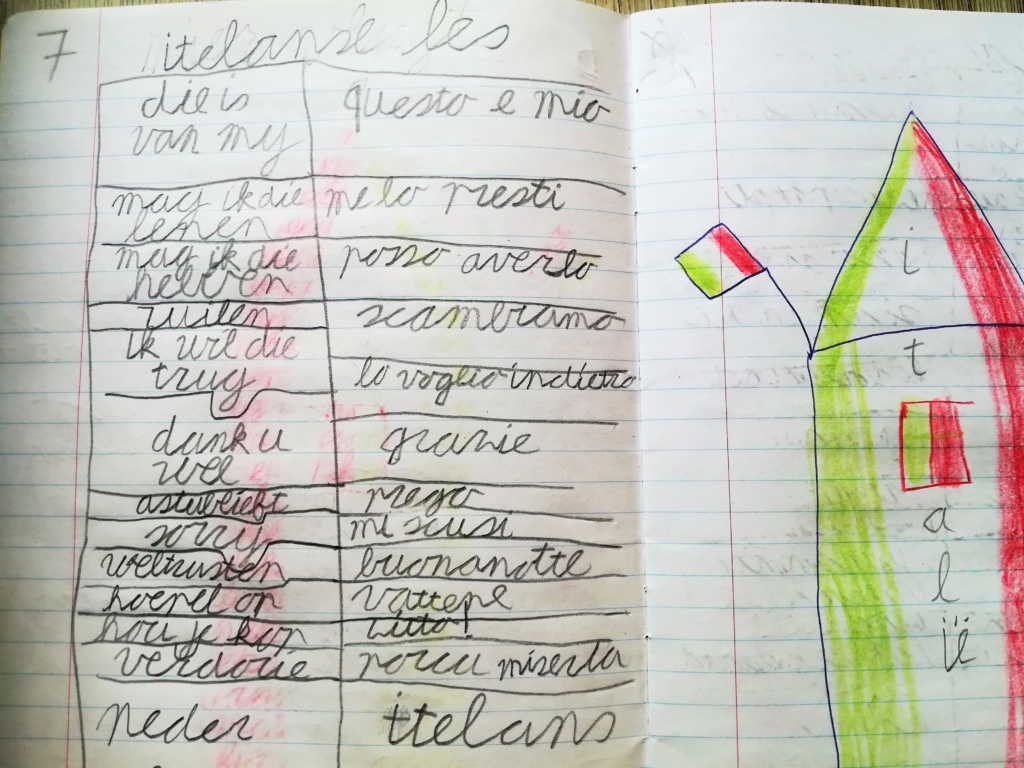 7 itelanse les
die is questo e mio
van my
mag ik die me lo presti
lenen
mag ik die posso averlo
hebben
ruilen scambiamo
ik wil die
trug lo voglio indietro
dank u grazie
wel
astublieft prego
sorry mi scusi
weltrusten buonanotte
hoepel op vattene
hou je kop zitto!
verdorie porca miseria
neder itelans
i
t
a
l
ië